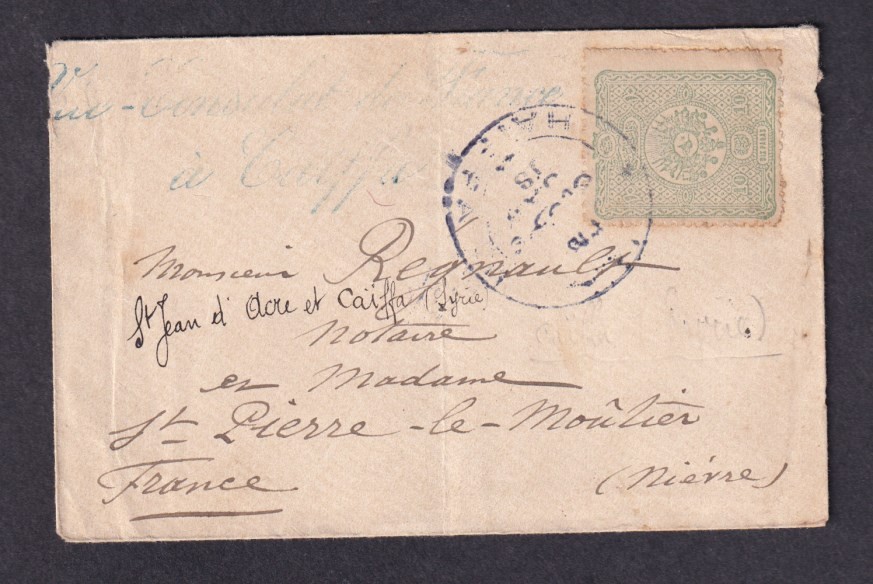 Vice-Consulat de France
à Caïffa
HAIFFA
10 10
Monsieur Regnault
St Jean d'Acre et Caïffa (Syrie)
Notaire
et Madame
St Pierre-le-Moûtier
France (Nièvre)